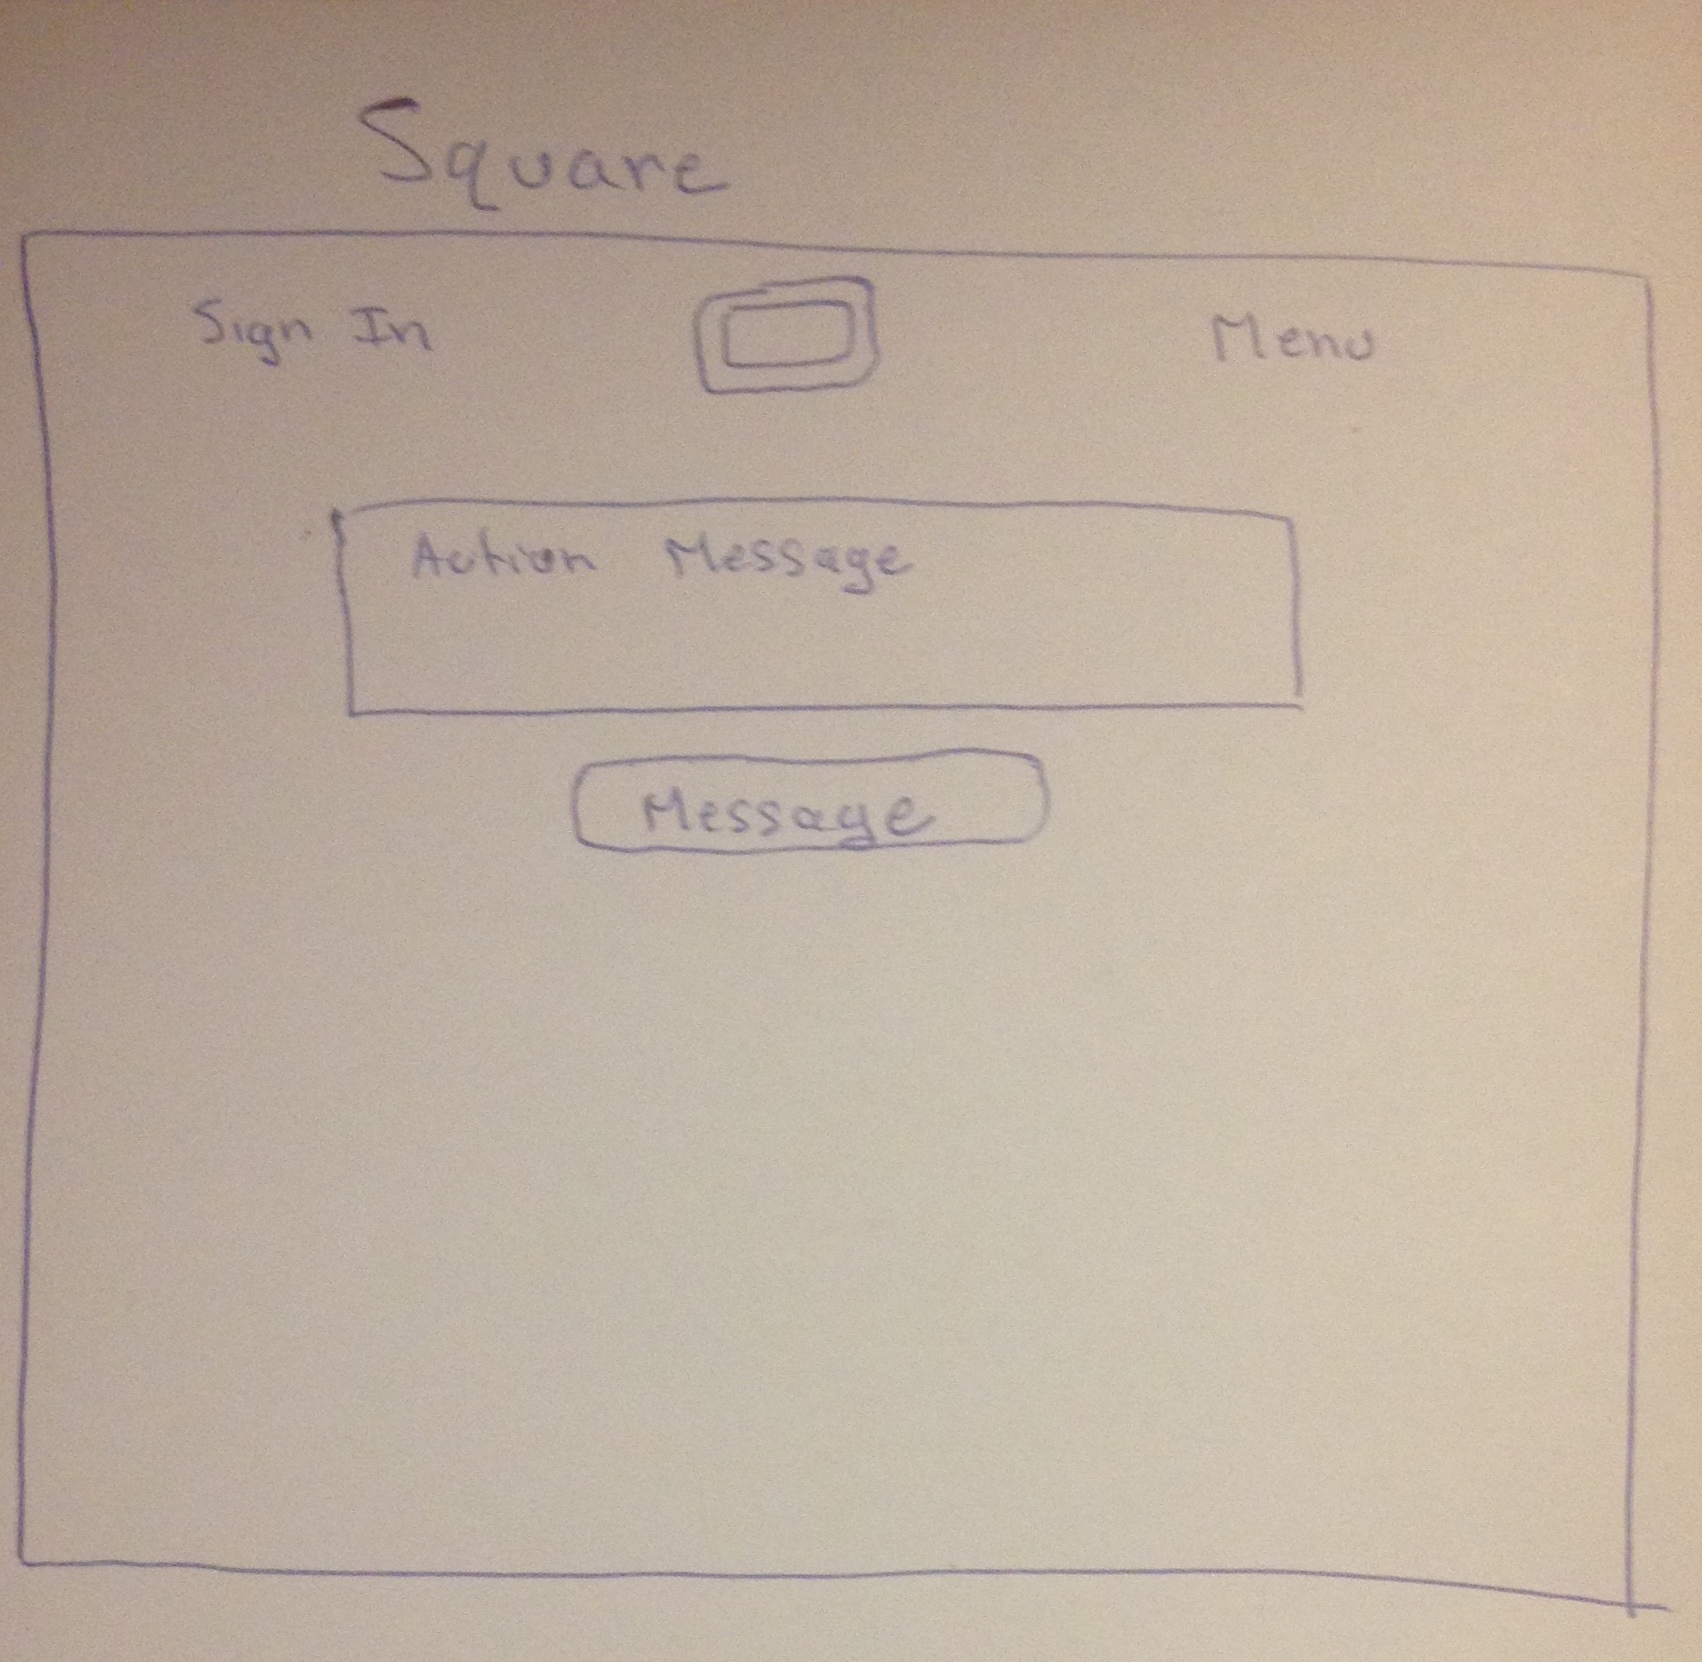 Square
Sign In Menu
Action Message
Message